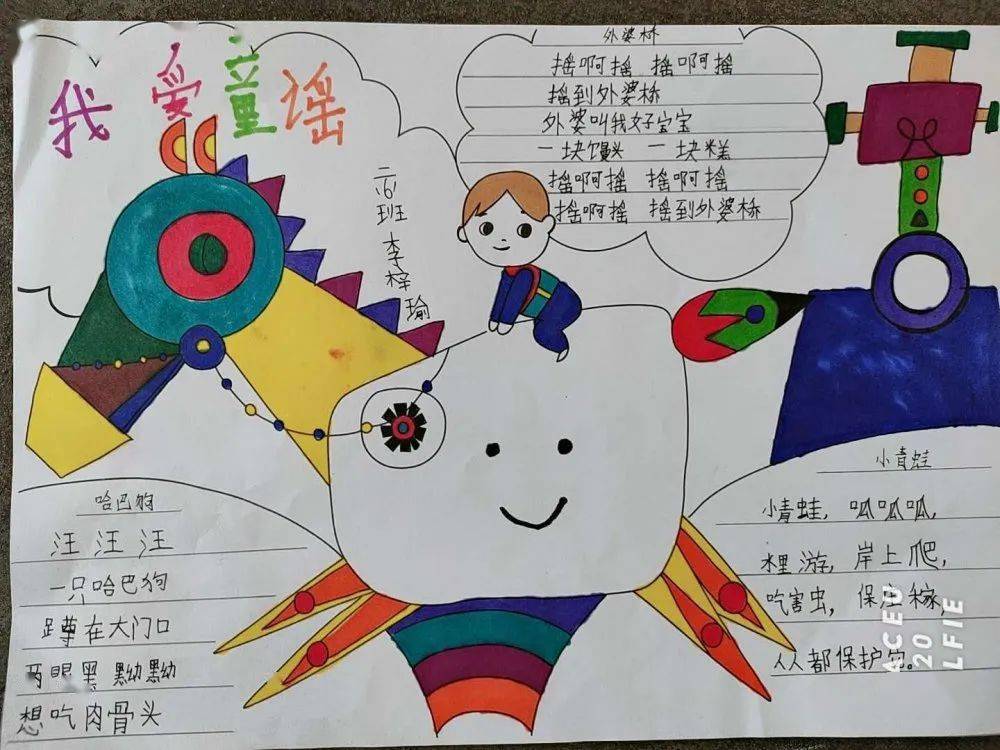 我爱童谣
二(6)班 李梓瑜
外婆桥
摇啊摇 摇啊摇
摇到外婆桥
外婆叫我好宝宝
一块馒头 一块糕
摇啊摇 摇啊摇
摇啊摇 摇到外婆桥
哈巴狗
汪 汪 汪
一只哈巴狗
蹲在大门口
两眼黑黝黝
想吃肉骨头
小青蛙
小青蛙，呱呱呱，
水里游，岸上爬，
吃害虫，保庄稼，
人人都保护它。
ACEU
20
LFIE